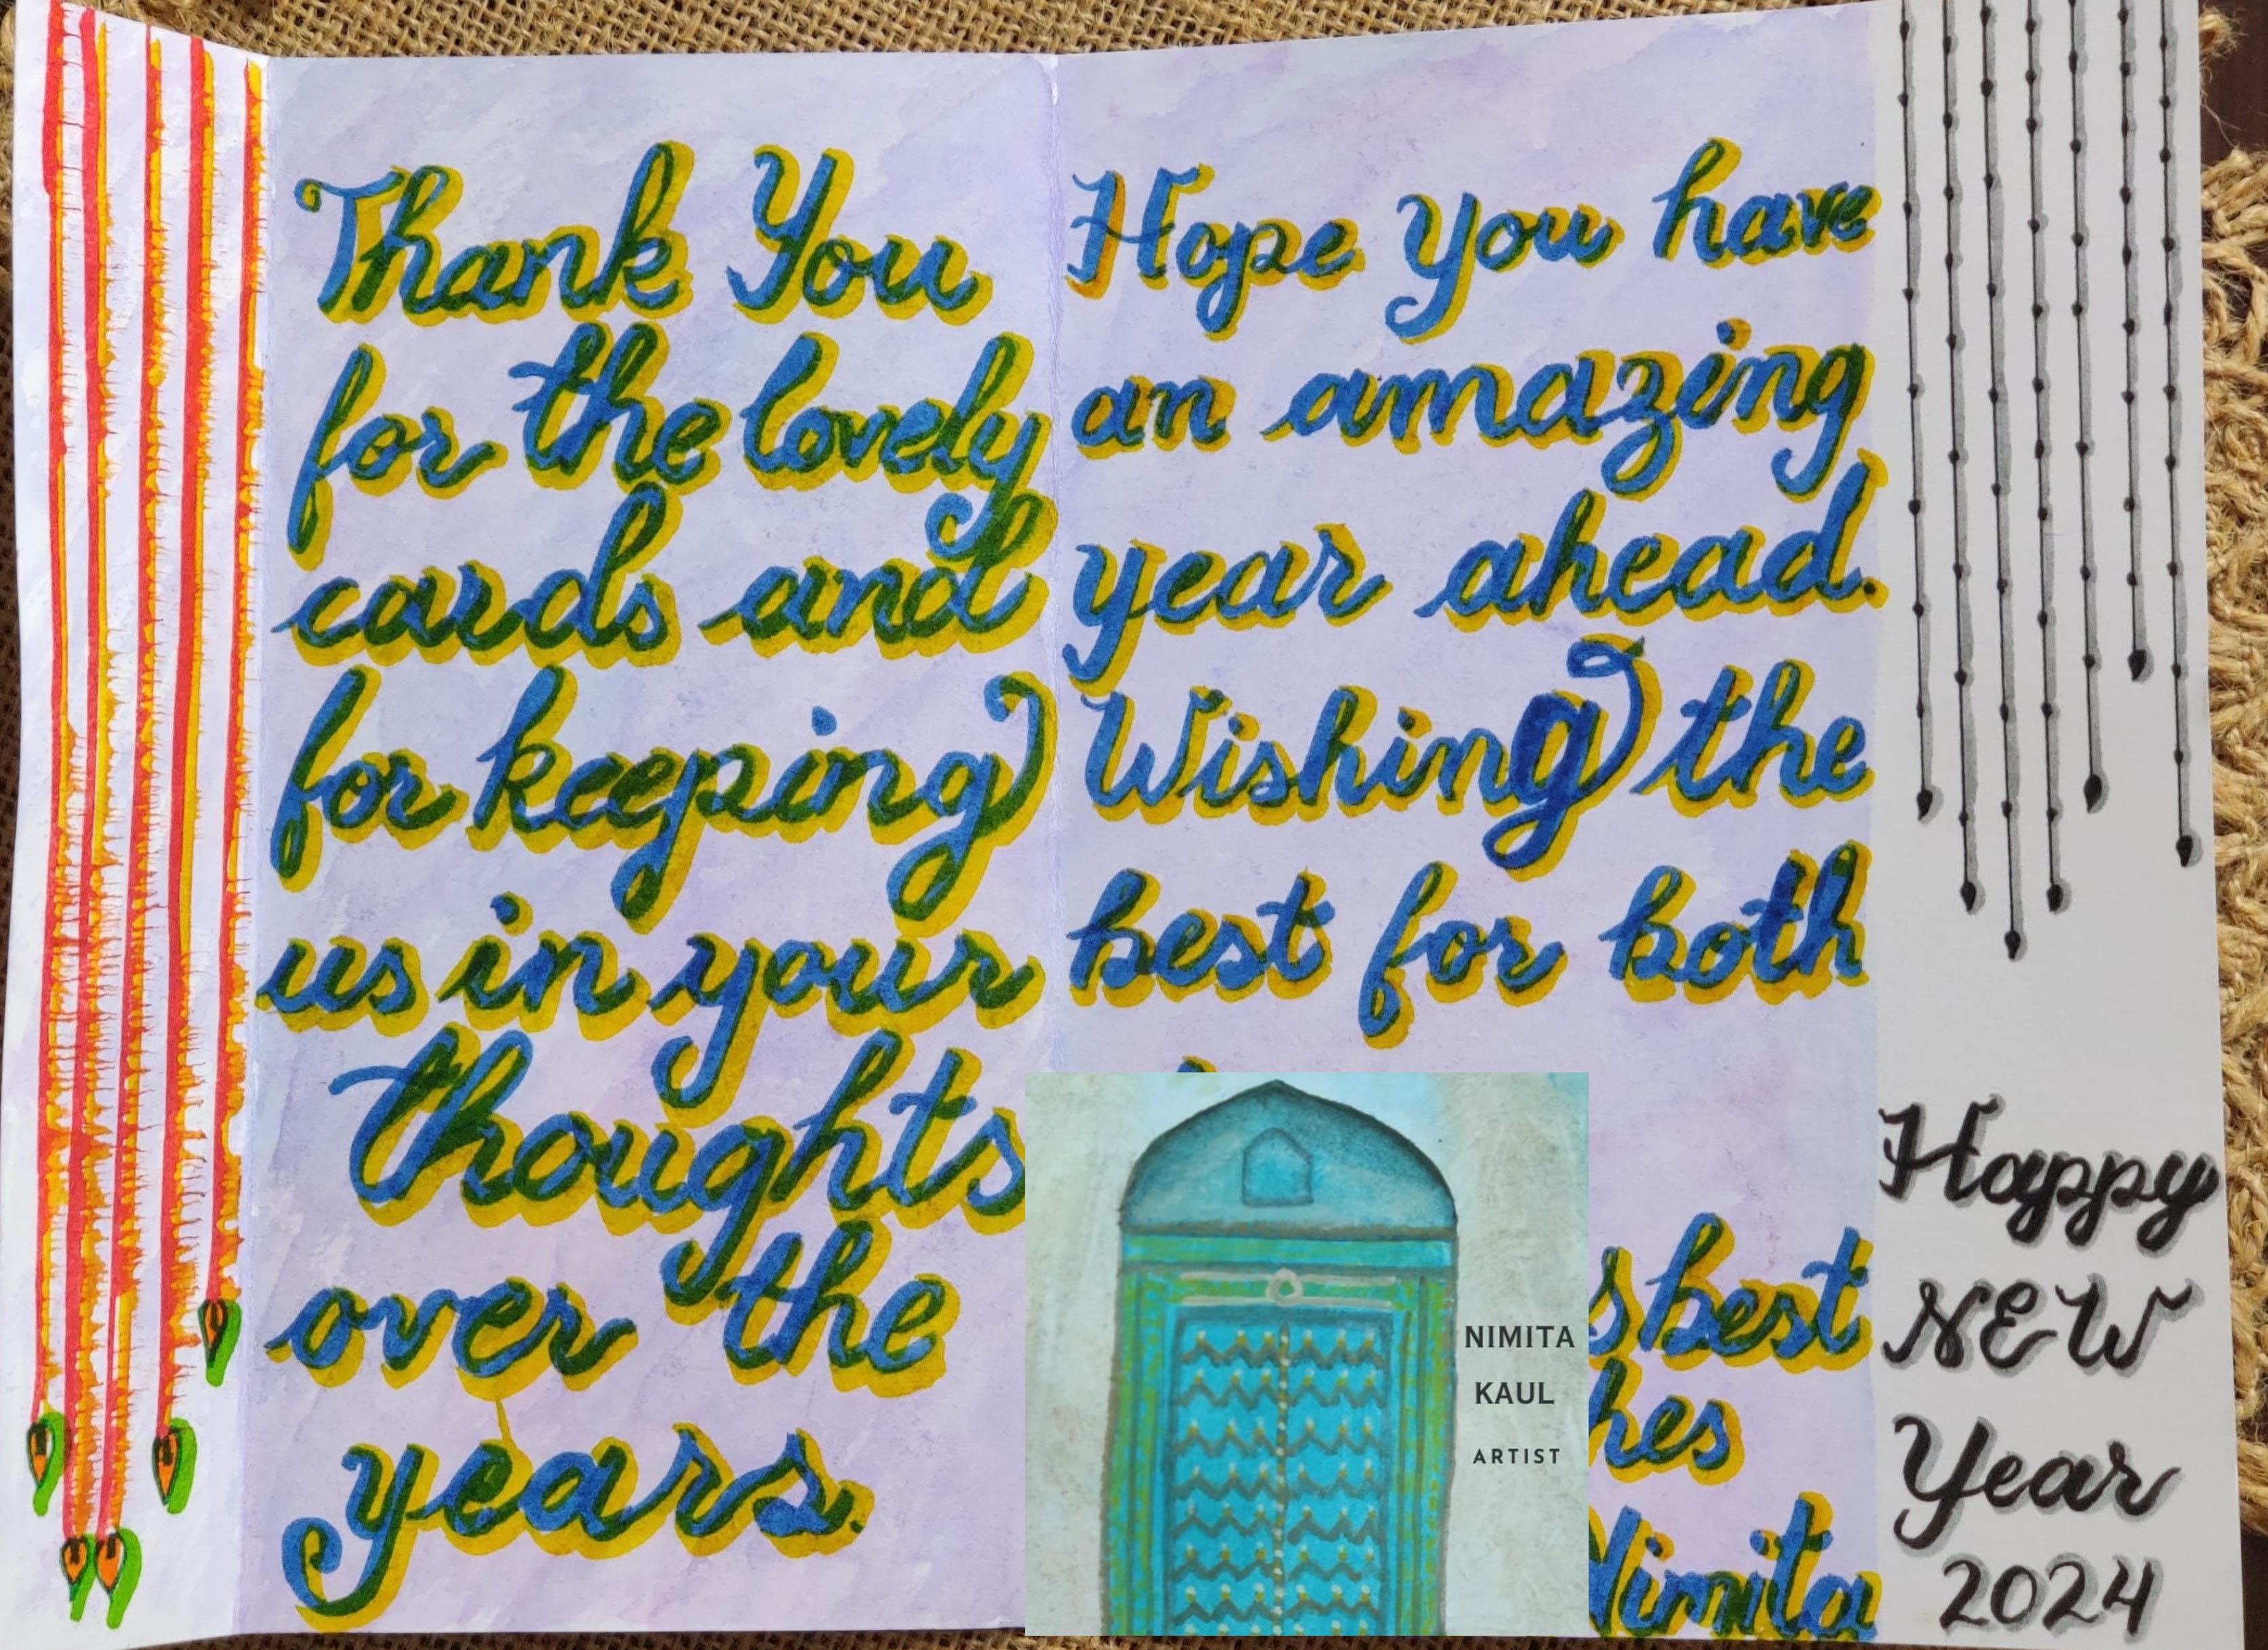 Thank You
for the lovely
cards and
for keeping
us in your
thoughts
over the
years.
Hope you have
an amazing
year ahead.
Wishing the
best for both
best
Nimita
NIMITA
KAUL
ARTIST
Happy
NEW
Year
2024